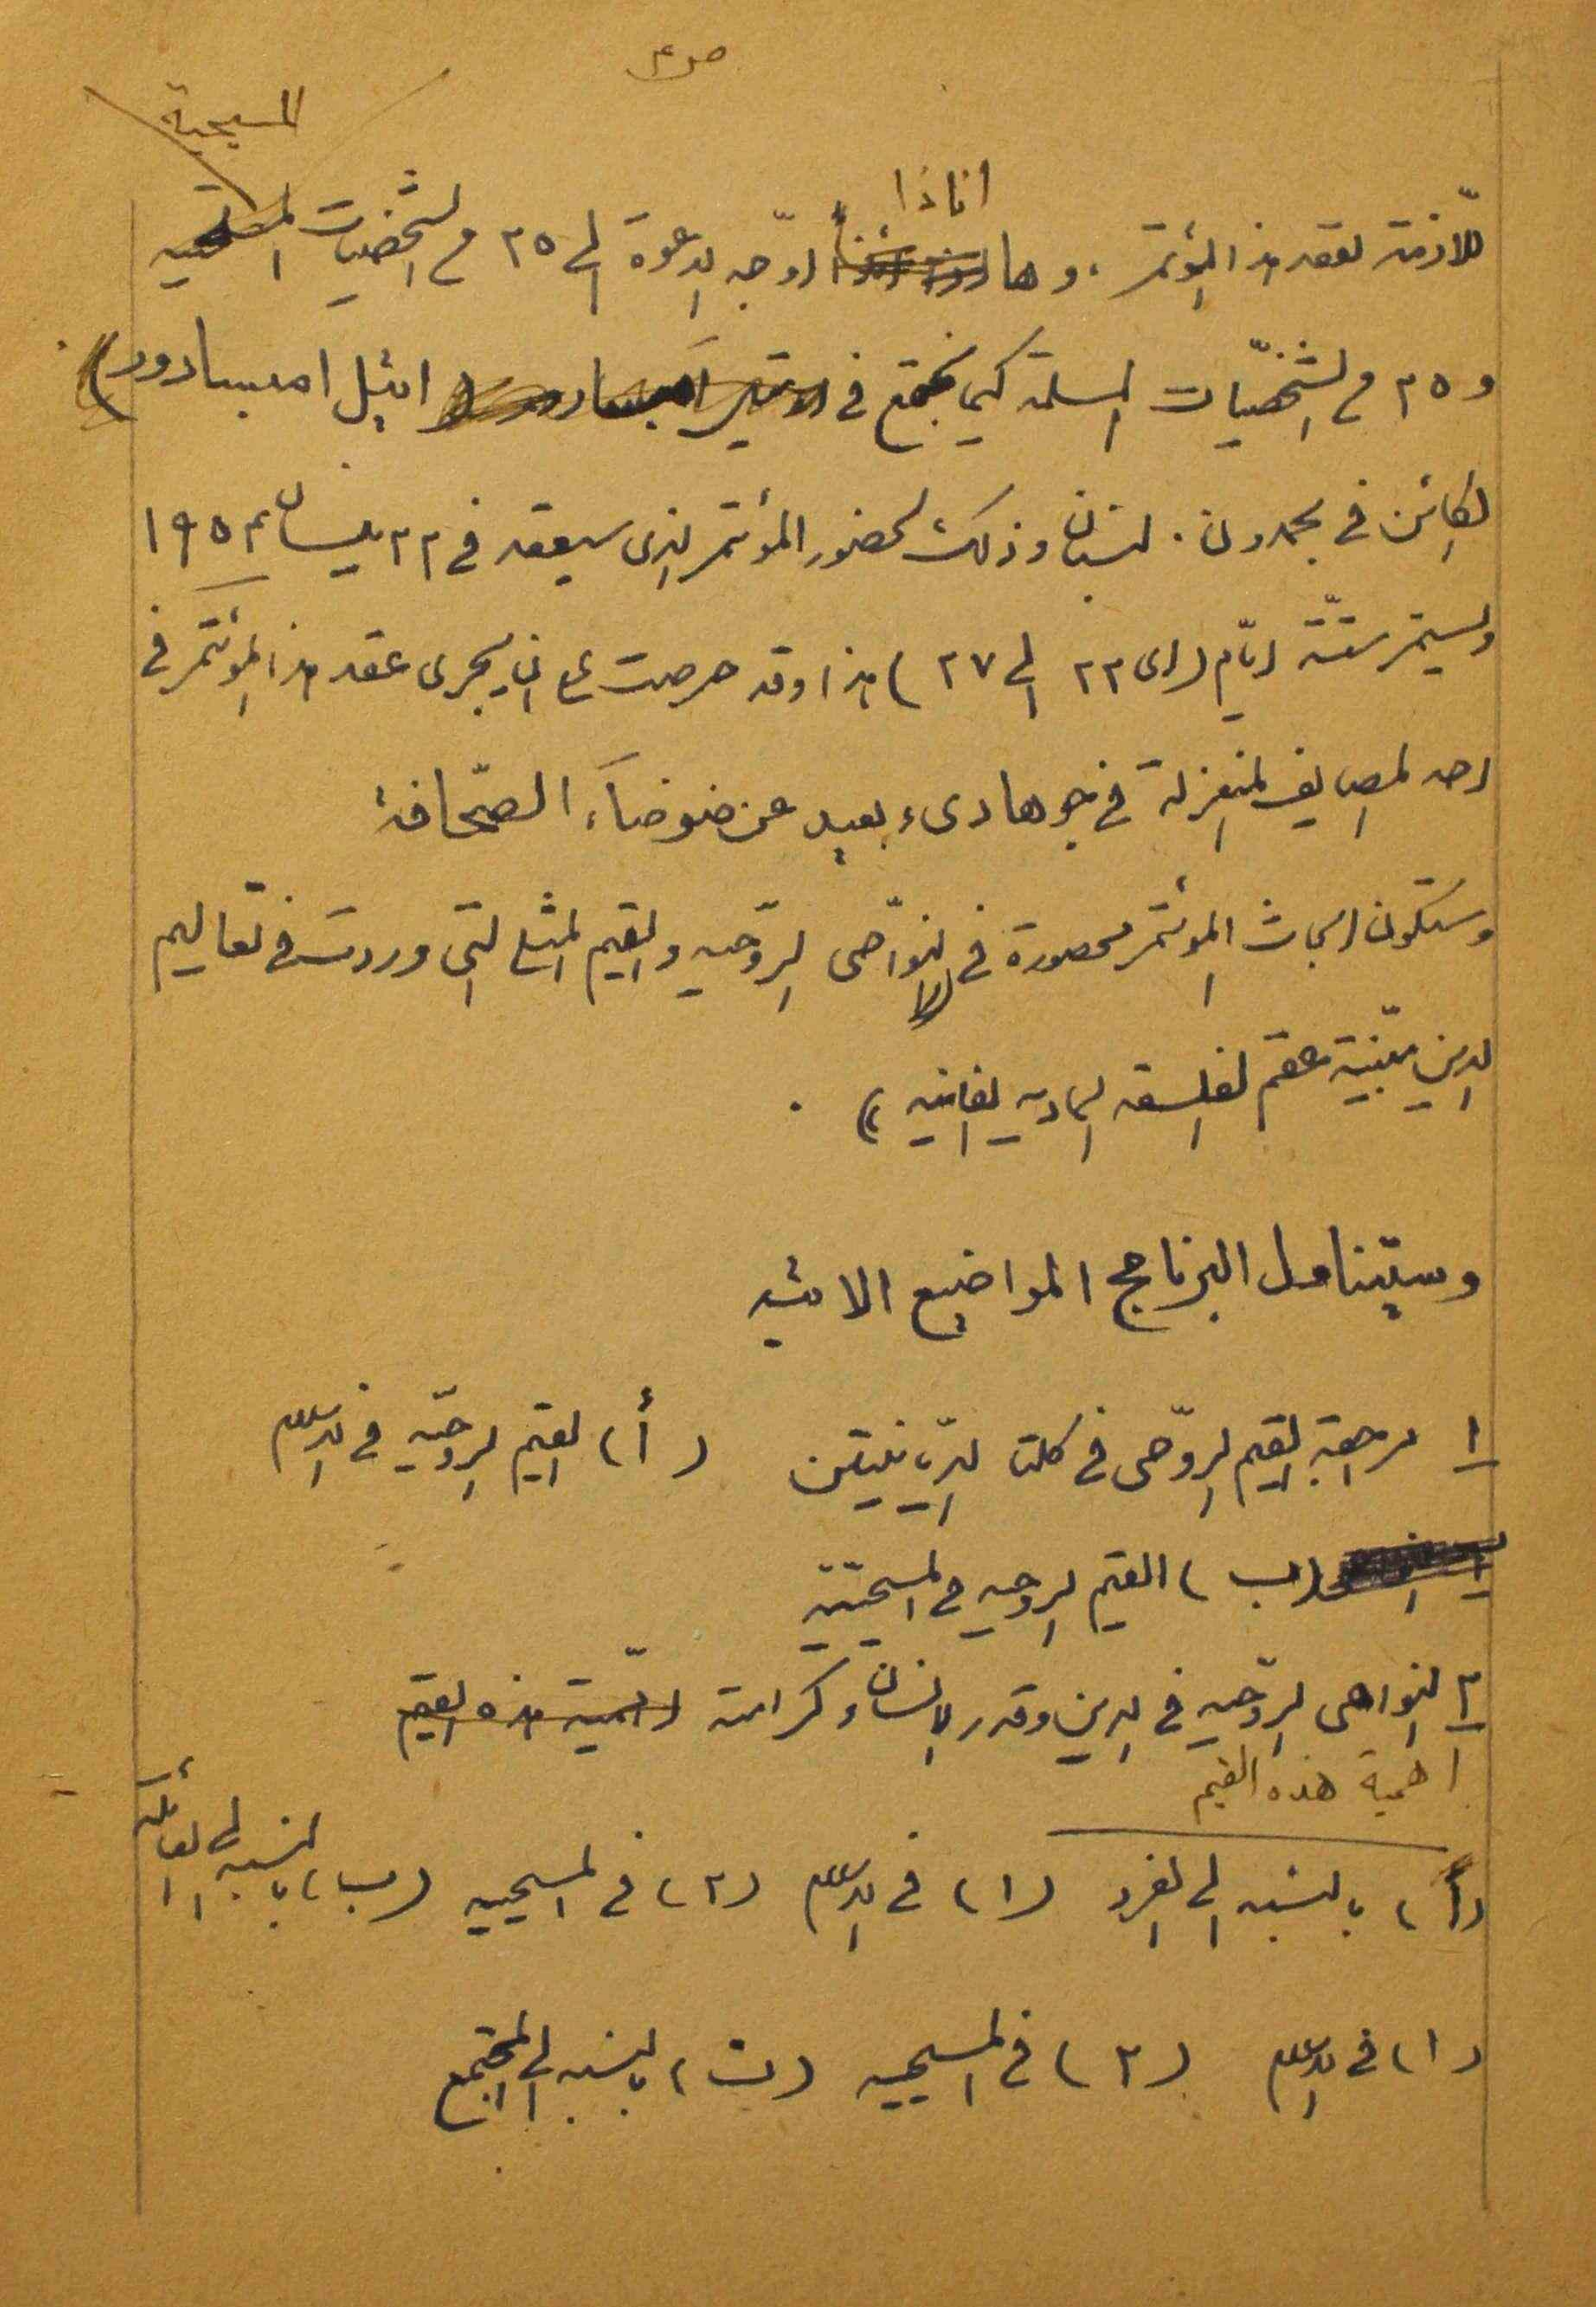 المسيحية
انا ذا
اللازمة لعقد هذا المؤتمر . وها اوجّه الدعوة الى ٢٥ من الشخصيات
و ٢٥ من الشخصيّات المسلمة كيما نجتمع في اوتيل امبسادور )
الكائن في بحمدون . لبنان وذلك لحضور المؤتمر الذي سيعقد في ٢٢ نيسان ١٩٥٤
وليستمر ستّة ايّام (اي ٢٢ الى ٢٧ ) هذا وقد حرصت على ان يجرى عقد هذا المؤتمر في
احد المصايف المنعزلة في جو هادىء بعيد عن ضوضاء الصحّافة
وستكون ابحاث المؤتمر محصورة في النواحى الروّحيه والقيم المثلى التي وردت في تعاليم
الدين مبيّنة عقم الفلسفه الماديه الفانيه )) .
وسيتناول البرنامج المواضيع الاتيه
١ مراجعة القيم الروّحى في كلتا الدّيانيتين ( أ ) القيم الروحيّه في الاسلام
( ب ) القيم الروحيه في المسيحيّة
٢ النواحى الروّحيه في الدين وقدر الانسان وكرامته اهميّة هذه القيم
اهمية هذه القيم
( أ ) بالنسبه الى الفرد ( ١ ) في الاسلام ( ٢ ) في المسيحيه ( ب ) بالنسبه الى العائلة
( ١ ) في الاسلام ( ٢ ) في المسيحيه ( ت ) بالنسبه الى المجتمع